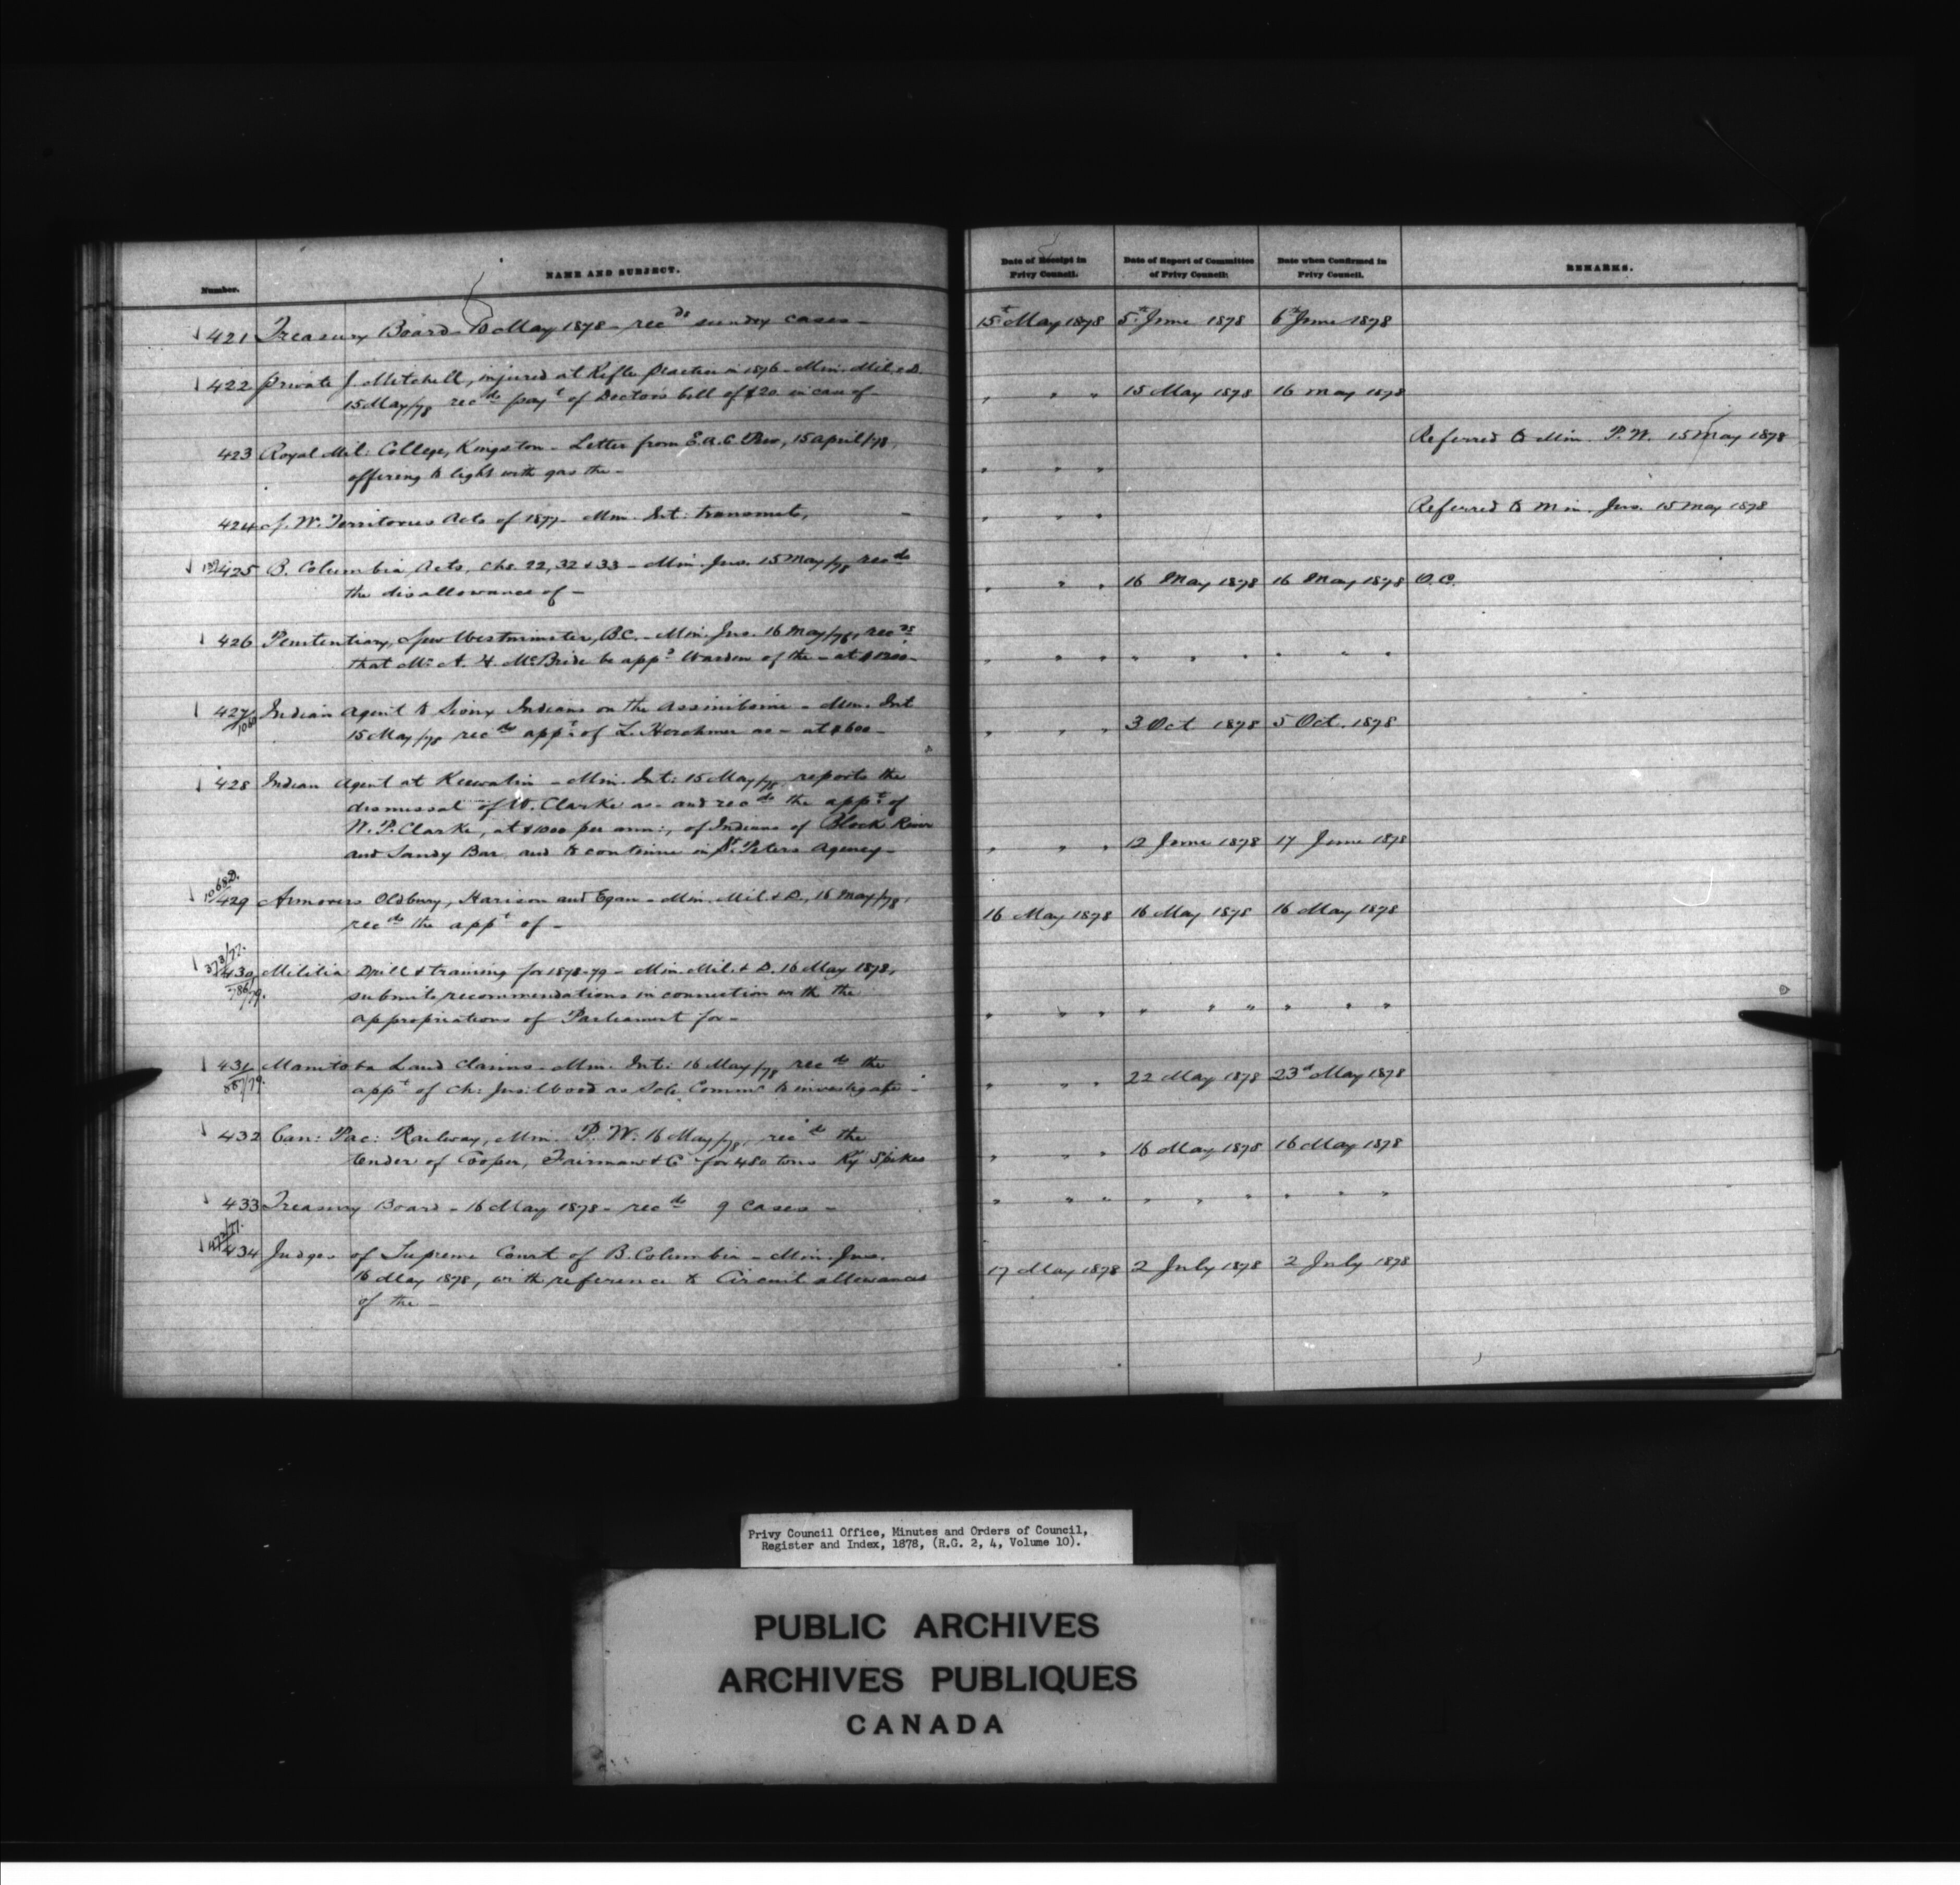 Number.
NAME AND SUBJECT.
Date of Receipt in Privy Council.
Date of Report of Committee of Privy Council.
Date when Confirmed in Privy Council.
REMARKS.
421 Treasury Board - May 1878 - rec ds sundry cases - 15t May 1878 5th June 1878 6th June 1878
422 Private J. Mitchell, injured at Rifle Practice in 1876 - Min. Mil. & D.
15 May/78 rec ds payt of Doctor's bill of $20 in case of - " " " 15 May 1878 16 May 1878
423 Royal Mil: College, Kingston - Letter from E.A.C. 15 April/78, Referred to Min. P.W. 15 May 1878
offering to light with gas the - " " "
424 N. W. Territories Acts of 1877 - Min. Int: transmits, - " " " Referred to Min. Jus. 15 May 1878
425 B. Columbia Acts, Chs. 22, 32 & 33 - Min. Jus. 15 May/78 rec ds
the disallowance of - " " " 16 May 1878 16 May 1878 O.C.
426 Penitentiary, New Westminster, B.C. - Min. Jus. 16 May/78, rec ds
that Mr A. H. McBride be appd Warden of the - at " " " " " " " " "
427 Indian Agent to Sioux Indians on the Assiniboine - Min. Int
15 May/78 rec ds appt of L. Herchmer as - at $600 - " " " 3 Oct 1878 5 Oct. 1878
428 Indian Agent at Keewatin - Min. Int: 15 May/78 reports the
dismissal of W. Clarke as - and rec ds the appt of
N. P. Clarke, at $1000 per ann:, of Indians of Black River
and Sandy Bar, and to continue in St. Peters Agency - " " " 12 June 1878 17 June 1878
1068D.
429 Armorers Oldbury, Harison and Egan - Min. Mil. & D., 15 May/78,
rec ds the appt of - 16 May 1878 16 May 1878 16 May 1878
373/77.
430 Militia Drill & training for 1878-79 - Min. Mil. & D. 16 May 1878,
786/79.
submits recommendations in connection with the
appropriations of Parliament for - " " " " " " " " "
431 Manitoba Land Claims - Min. Int: 16 May/78 rec ds the
appt of Ch: Jus: Wood as Sole Commr to investigate - " " " 22 May 1878 23d May 1878
432 Can: Pac: Railway, Min. P. W. 16 May/78, rec ds the
tender of Cooper, Fairman & Co for 480 tons Ry Spikes " " " 16 May 1878 16 May 1878
433 Treasury Board - 16 May 1878 - rec ds 9 cases - " " " " " " " " "
434 Judges of Supreme Court of B. Columbia - Min. Jus.
16 May 1878, with reference to Circuit allowances 17 May 1878 2 July 1878 2 July 1878
of the -
Privy Council Office, Minutes and Orders of Council,
Register and Index, 1878, (R.G. 2, 4, Volume 10).
PUBLIC ARCHIVES
ARCHIVES PUBLIQUES
CANADA